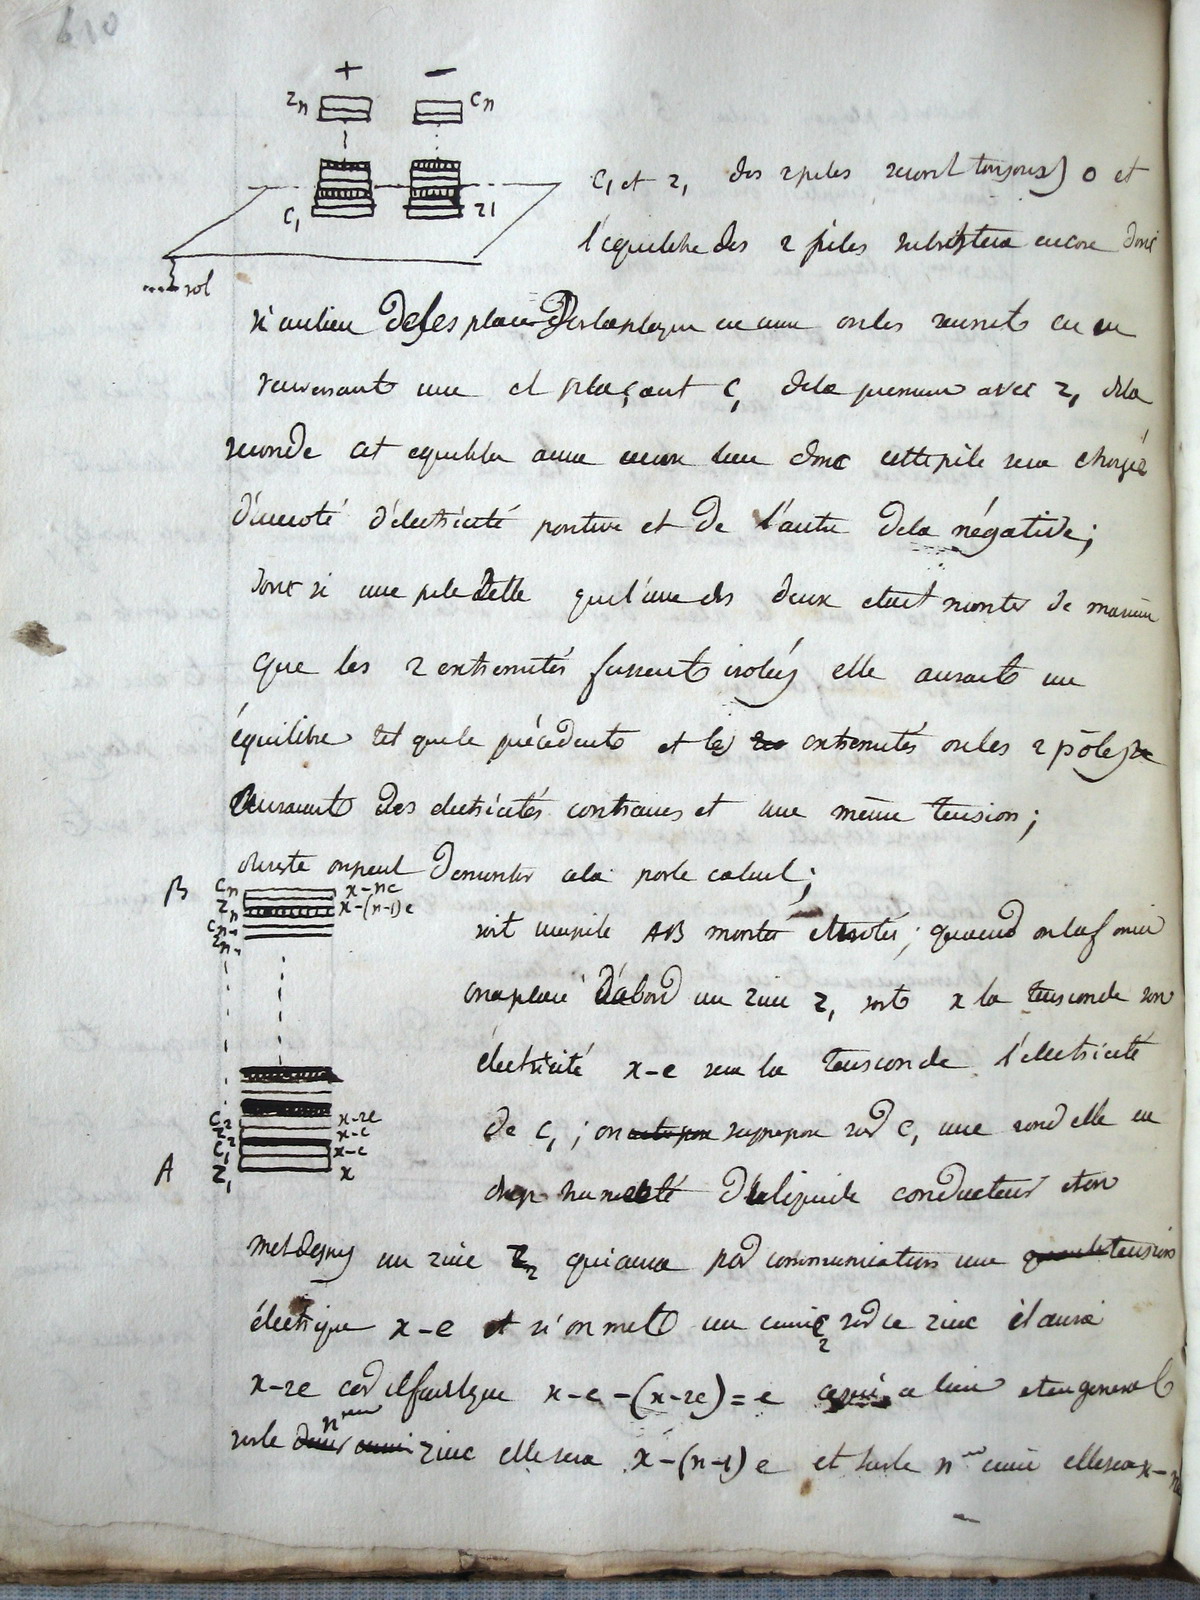 610
+ −
Zn Cn
C1 Z1
sol
C1 et Z1 des 2 piles seront toujours 0 et
l'equilibre des 2 piles subsistera encore donc
si aulieu de les placer sur la plaque on les reunit en en
renversant une et plaçant C1 de la premiere avec Z1 dela
seconde cet equilibre aura encore lieu donc cette pile sera chargée
d'un coté d'électricité positive et de l'autre dela négative;
donc si une pile telle que l'une des deux etait montée de maniere
que les 2 extremités fussent isolées elle aurait un
équilibre tel que le précédent et les extremités ou les 2 pôles
auraient des electricités contraires et une même tension;
du reste on peut demontrer cela par le calcul;
B
Cn x-ne
Zn x-(n-1)e
Cn-1
Zn-1
soit une pile AB montée et isolée; quand on la formé
on a placé d'abord un zinc Z1 soit x la tension de son
électricité x-e sera la tension de l'electricité
C2 x-2e
Z2 x-e
C1 x-e
Z1 x
A
de C1; on superpose sur C1 une rondelle en
drap humecté de liquide conducteur et on
met dessus un zinc Z2 qui aura par communication une tension
électrique x-e et si on met un cuivre C2 sur ce zinc il aura
x-2e car il faut que x-e-(x-2e)=e ce qui a lieu et en general
sur le nme zinc elle sera x-(n-1)e et sur le nme cuivre elle sera x-n